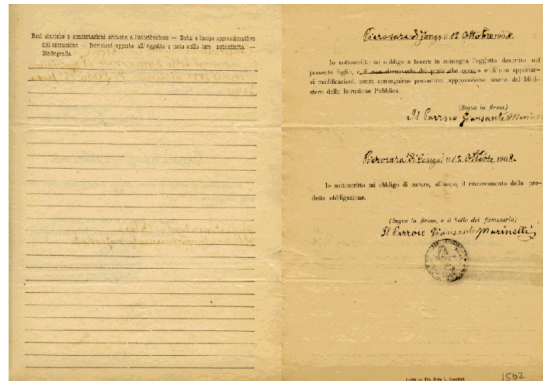 Dati storici e concertazioni attorno a l'attribuzione — Data o tempo approssimativo
dell'esecuzione — Iscrizioni apposte all'oggetto e nota sulla loro autenticità —
Bibliografia
Pierosara di Genga, 12 Ottobre 1908.
Io sottoscritto mi obbligo a tenere in consegna l'oggetto descritto nel
presente foglio, e di non apportar-
vi modificazioni, senza conseguirne preventiva approvazione scritta dal Mini-
stero della Istruzione Pubblica.
(Segue la firma)
Il Parroco Giansante Marinelli
Pierosara di Genga, 12 Ottobre 1908.
Io sottoscritto mi obbligo di curare, all'uopo, il rinnovamento della pre-
detta obbligazione.
(Segue la firma, e il bollo del firmatario)
Il Parroco Giansante Marinelli
1562